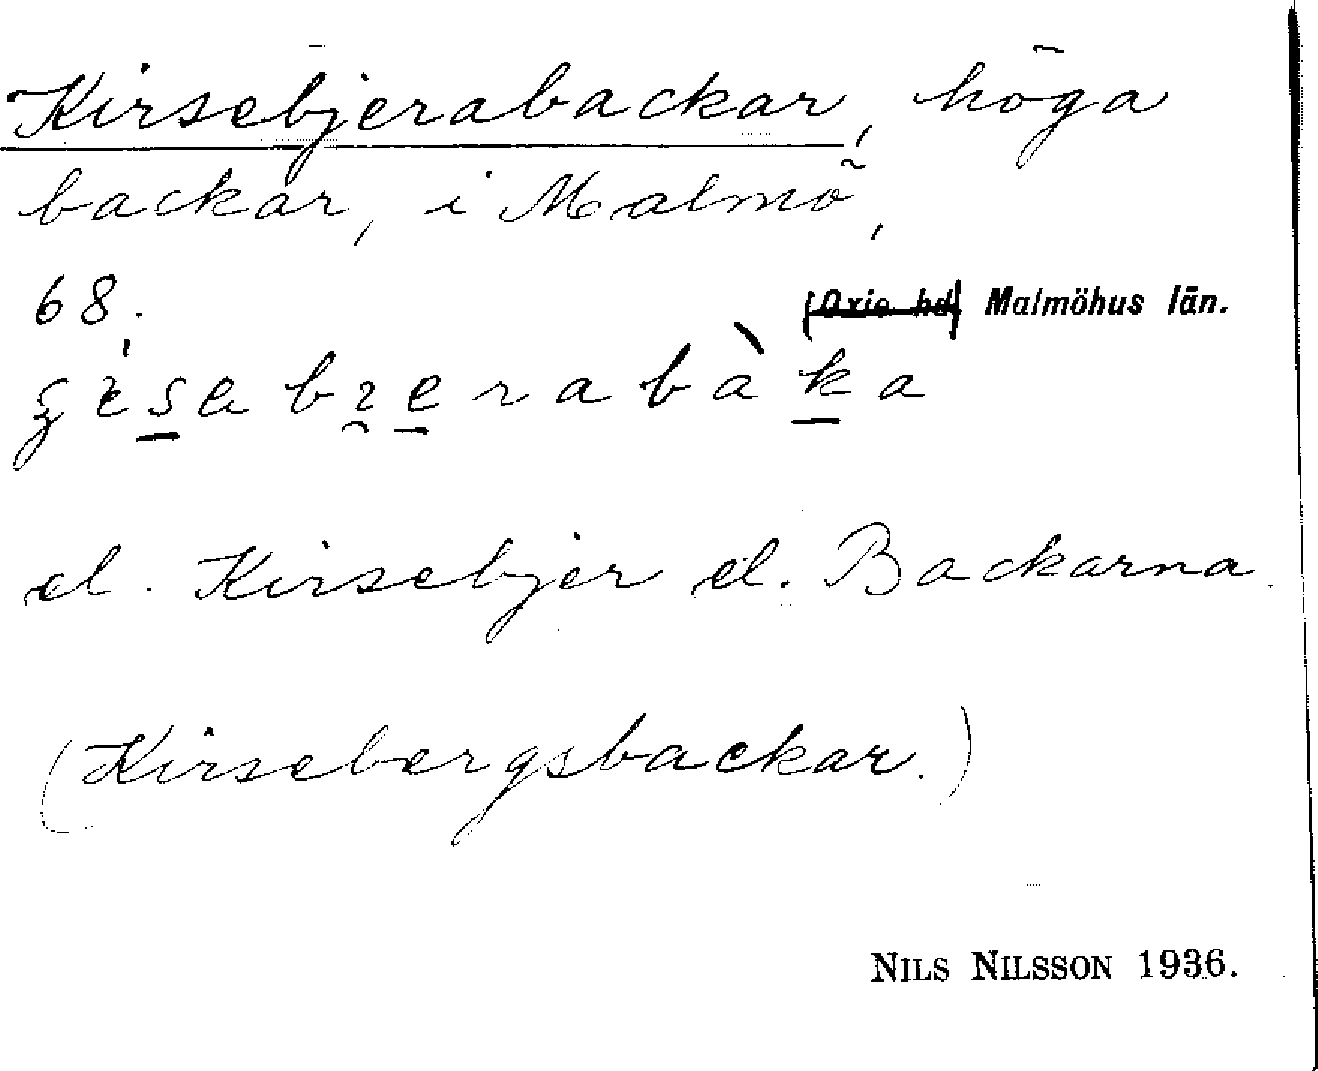 Kirsebjerabackar, höga
backar, i Malmö,
68.
(Oxie hd) Malmöhus län.
el. Kirsebjer el. Backarna.
(Kirsebergsbackar.)
NILS NILSSON 1936.